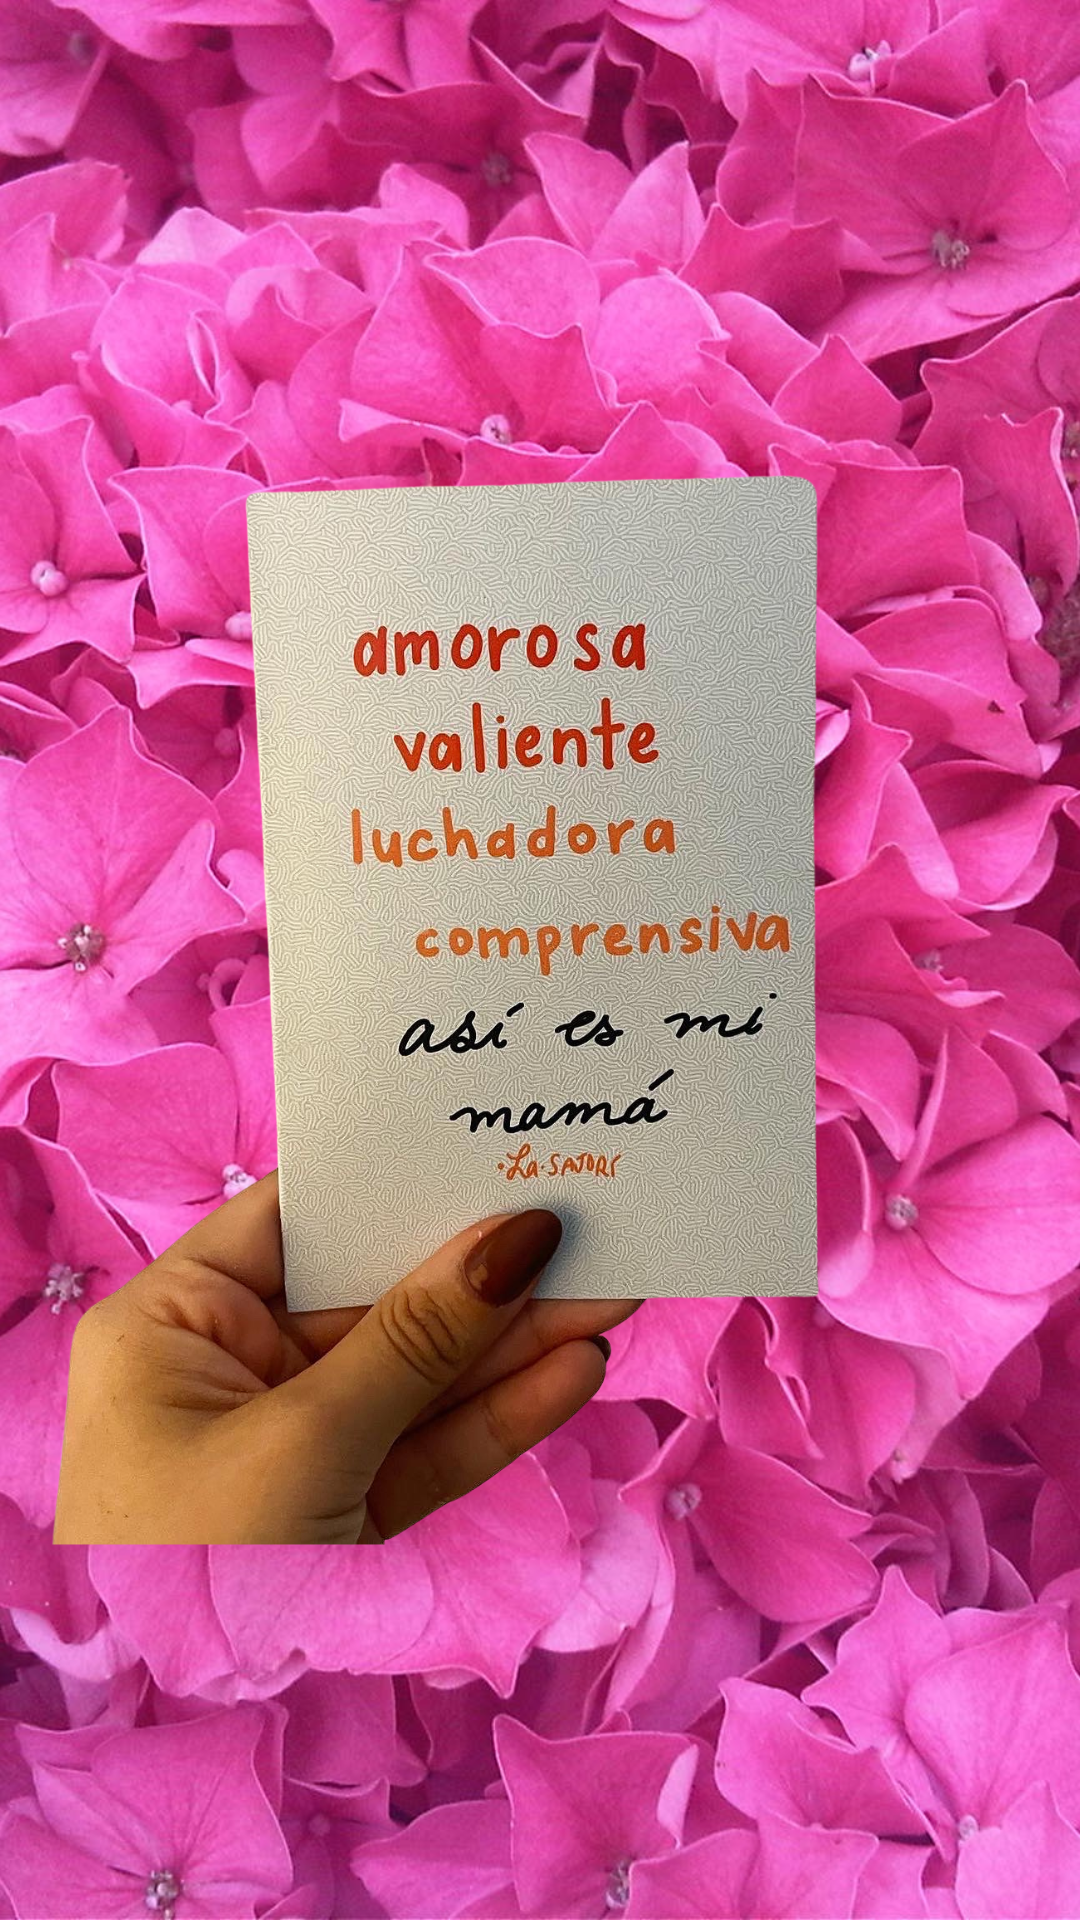 amorosa
valiente
luchadora
comprensiva
así es mi
mamá
·La·SATORI